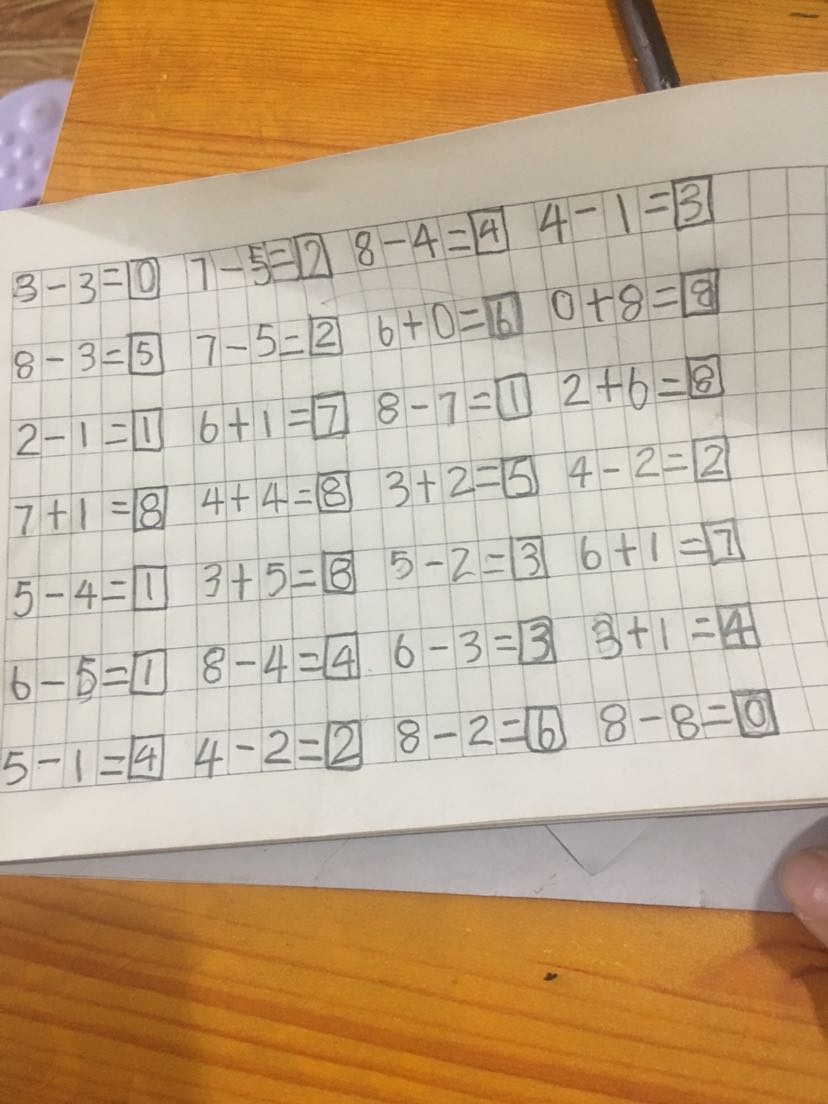 3-3=0 7-5=2 8-4=4 4-1=3
8-3=5 7-5=2 6+0=6 0+8=8
2-1=1 6+1=7 8-7=1 2+6=8
7+1=8 4+4=8 3+2=5 4-2=2
5-4=1 3+5=8 5-2=3 6+1=7
6-5=1 8-4=4 6-3=3 3+1=4
5-1=4 4-2=2 8-2=6 8-8=0